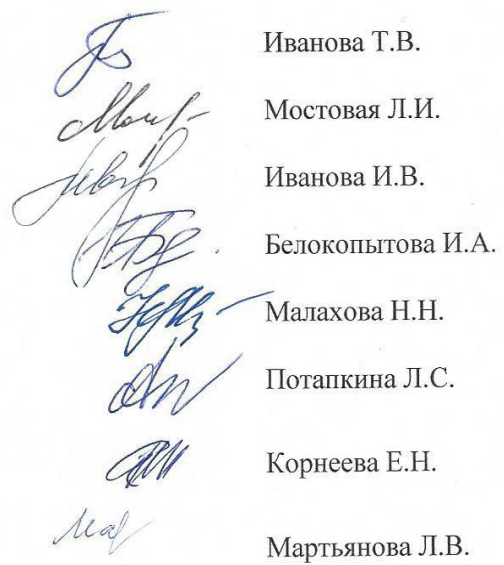 Иванова Т.В.
Мостовая Л.И.
Иванова И.В.
Белокопытова И.А.
Малахова Н.Н.
Потапкина Л.С.
Корнеева Е.Н.
Мартьянова Л.В.